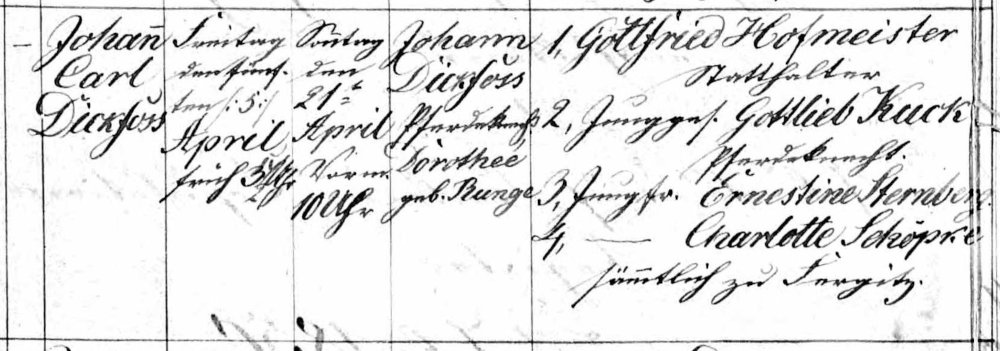 Johan̅
Carl
Dickfoss
Freitag
den fünf-
ten /:5:/
April
früh 3 Uhr
Son̅tag
den
21t
April
Vorm.
10 Uhr
Johann
Dickfoss
Pferdeknecht
Dorothee
geb. Runge
1, Gottfried Hofmeister
Statthalter
2, Junggs. Gottlieb Kuck
Pferdeknecht.
3, Jungfr. Ernestine Sternberg
4, — Charlotte Schöpke
sämtlich zu Fergitz.